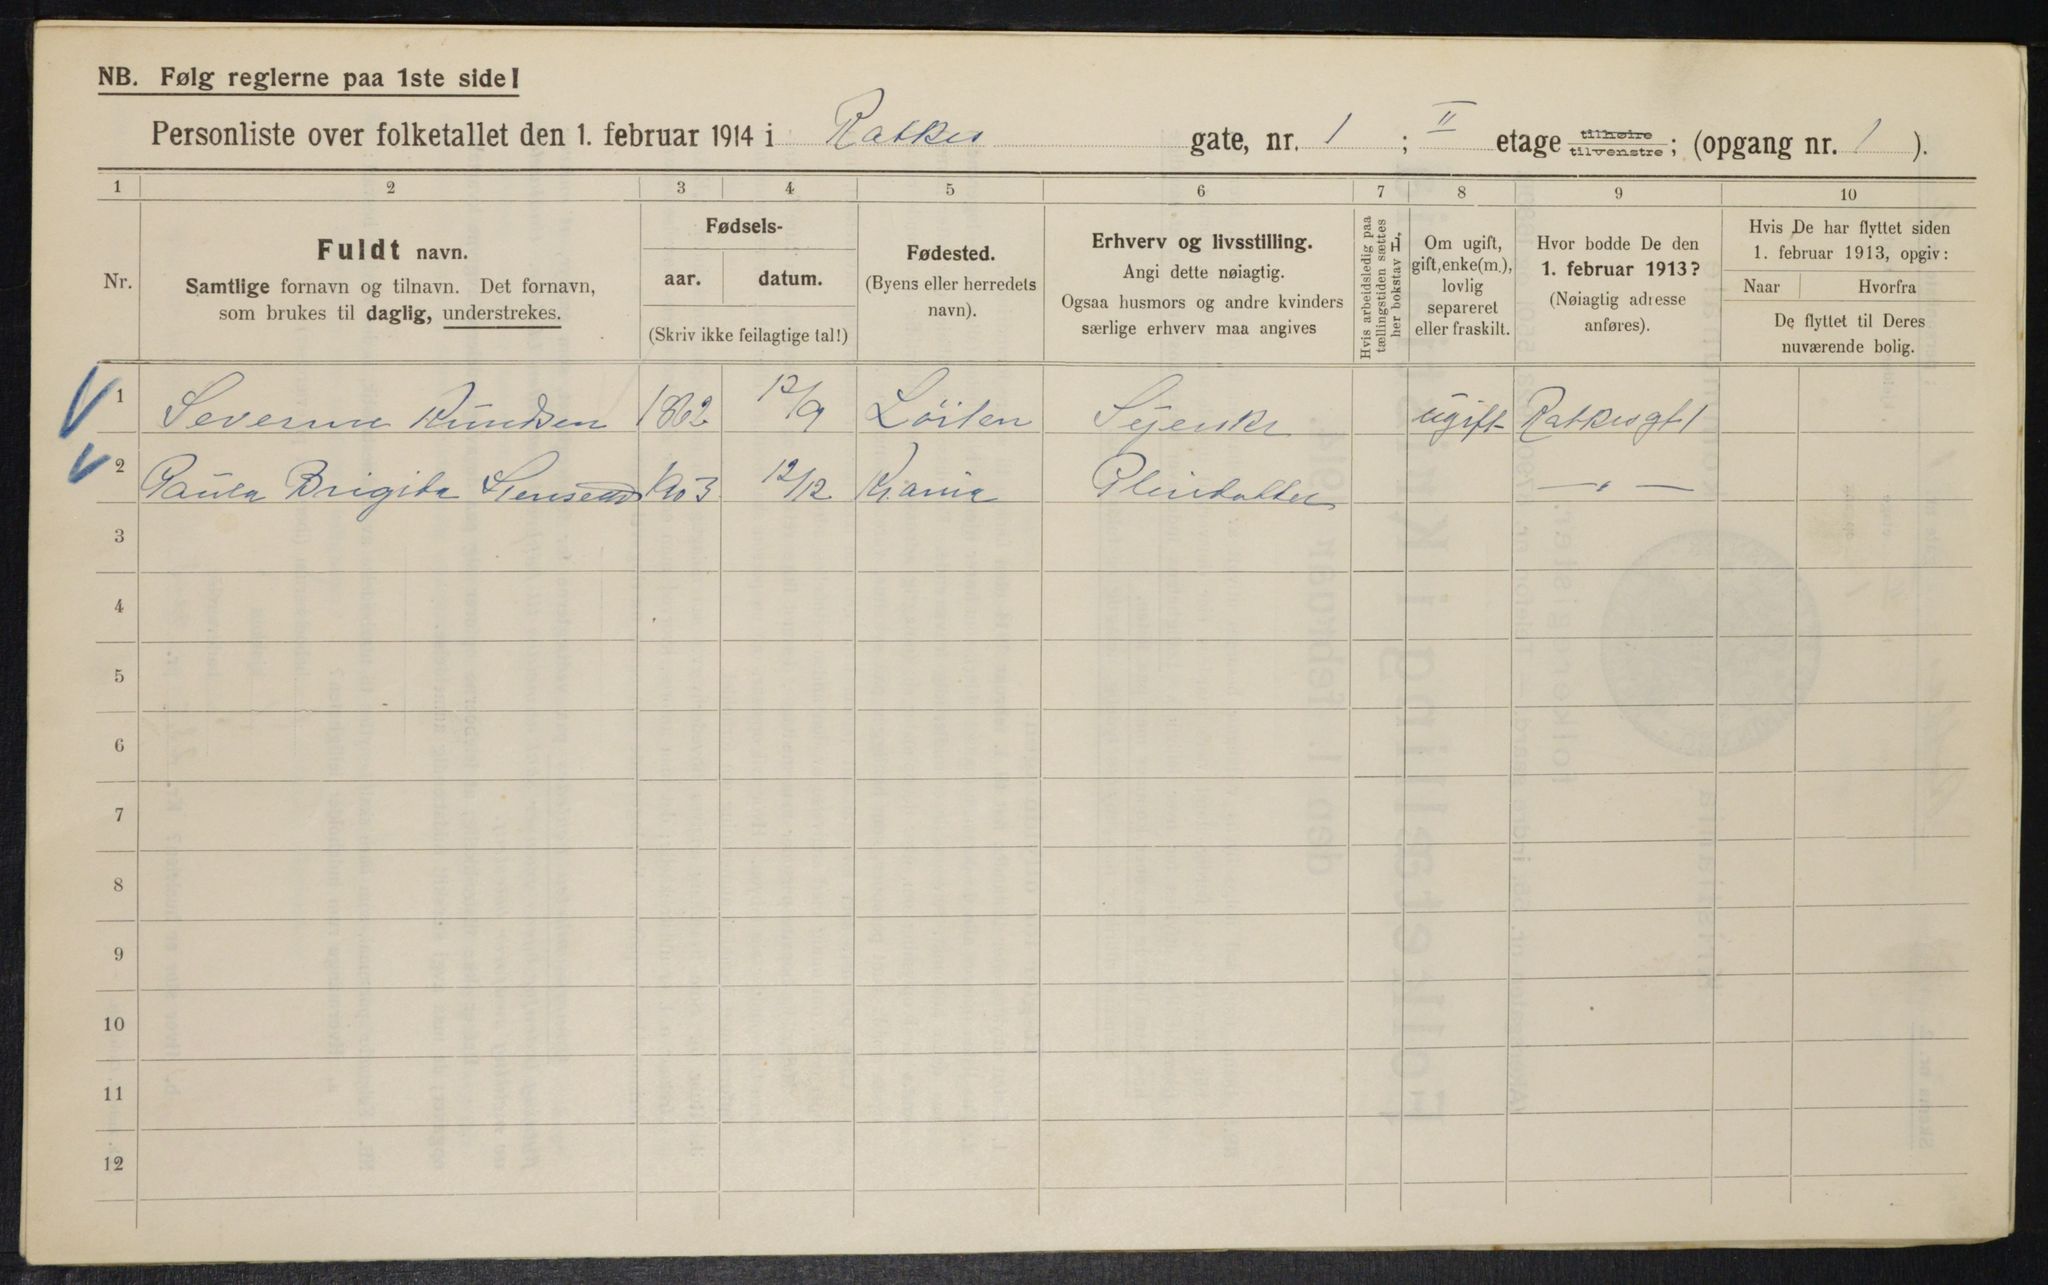 NB. Følg reglerne paa 1ste side!
Personliste over folketallet den 1. februar 1914 i Ratkes gate, nr. 1 ; II etage tilhøire tilvenstre ; (opgang nr. 1 ).
1 2 3 4 5 6 7 8 9 10
Nr.
Fuldt navn.
Samtlige fornavn og tilnavn. Det fornavn,
som brukes til daglig, understrekes.
Fødsels-
aar. datum.
(Skriv ikke feilagtige tal!)
Fødested.
(Byens eller herredets
navn).
Erhverv og livsstilling.
Angi dette nøiagtig.
Ogsaa husmors og andre kvinders
særlige erhverv maa angives
Hvis arbeidsledig paa
tællingstiden sættes
her bokstav L.
Om ugift,
gift, enke(m.),
lovlig
separeret
eller fraskilt.
Hvor bodde De den
1. februar 1913?
(Nøiagtig adresse
anføres).
Hvis De har flyttet siden
1. februar 1913, opgiv:
Naar Hvorfra
De flyttet til Deres
nuværende bolig.
1 Severine Knudsen 1862 12/9 Löiten Syerske ugift Ratkesgt 1
2 Paula Brigita 1903 12/12 Krania Pleiedatter — „ —
3
4
5
6
7
8
9
10
11
12